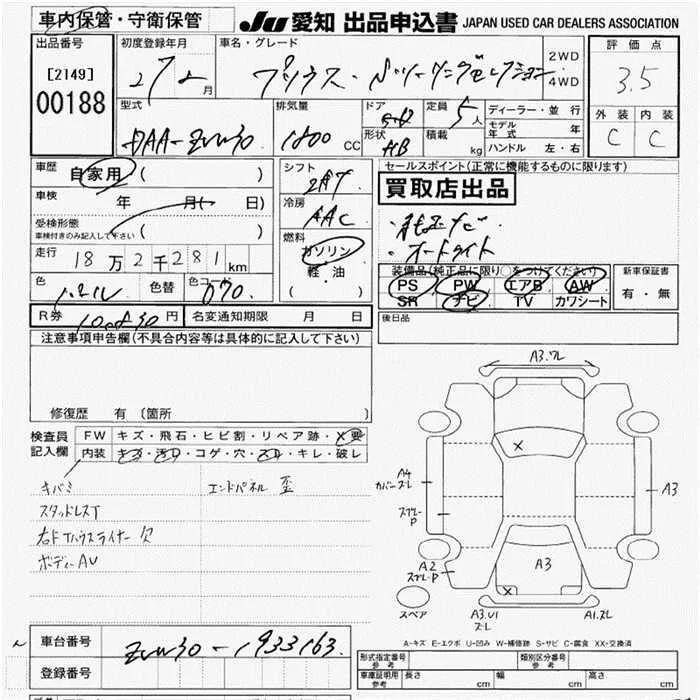 車内保管・守衛保管
JU 愛知 出品申込書 JAPAN USED CAR DEALERS ASSOCIATION
出品番号
[2149]
00188
初度登録年月
27年 月
車名・グレード
プリウス・Sツーリングセレクション
2WD
4WD
評価点
3.5
外装 内装
C C
型式
DAA-ZVW30
排気量
1800 CC
ドア
形状
HB
定員
5人
積載
kg
ディーラー・並行
モデル年式 年
ハンドル 左・右
車歴
自家用 ( )
車検 年 月( 日)
受検形態
車検付きのみ記入して下さい ( )
走行 18万2千281km
色
パール
色替
色コード
070
シフト
2AT
冷房
AAC
燃料
ガソリン
軽・油
( )
セールスポイント(正常に機能するものに限ります)
買取店出品
・純正ナビ
・オートライト
装備品(純正品に限り○をつけてください)
PS PW エアB AW
SR ナビ TV カワシート
新車保証書
有・無
R券 円
名変通知期限 月 日
後日品
注意事項申告欄(不具合内容等は具体的に記入して下さい)
修復歴 有 (箇所 )
検査員記入欄
FW キズ・飛石・ヒビ割・リペア跡・X要
内装 キズ・汚れ・コゲ・穴・スレ・キレ・破レ
キバミ エンドパネル 歪
スタッドレスT
右Fタハウスライナー 欠
ボディーAU
A3.ワレ
X
A4
カバーズレ
スプレーP
A3
A2
スプレーP
A3
X
スペア
A3.U1
ズレ
A1.ズレ
A-キズ E-エクボ U-凹み W-補修跡 S-サビ C-腐食 XX-交換済
車台番号 ZVW30-1933163
登録番号
形式指定番号
参考
類別区分番号
参考
車庫証明用
参考
長さ cm 幅 cm 高さ cm